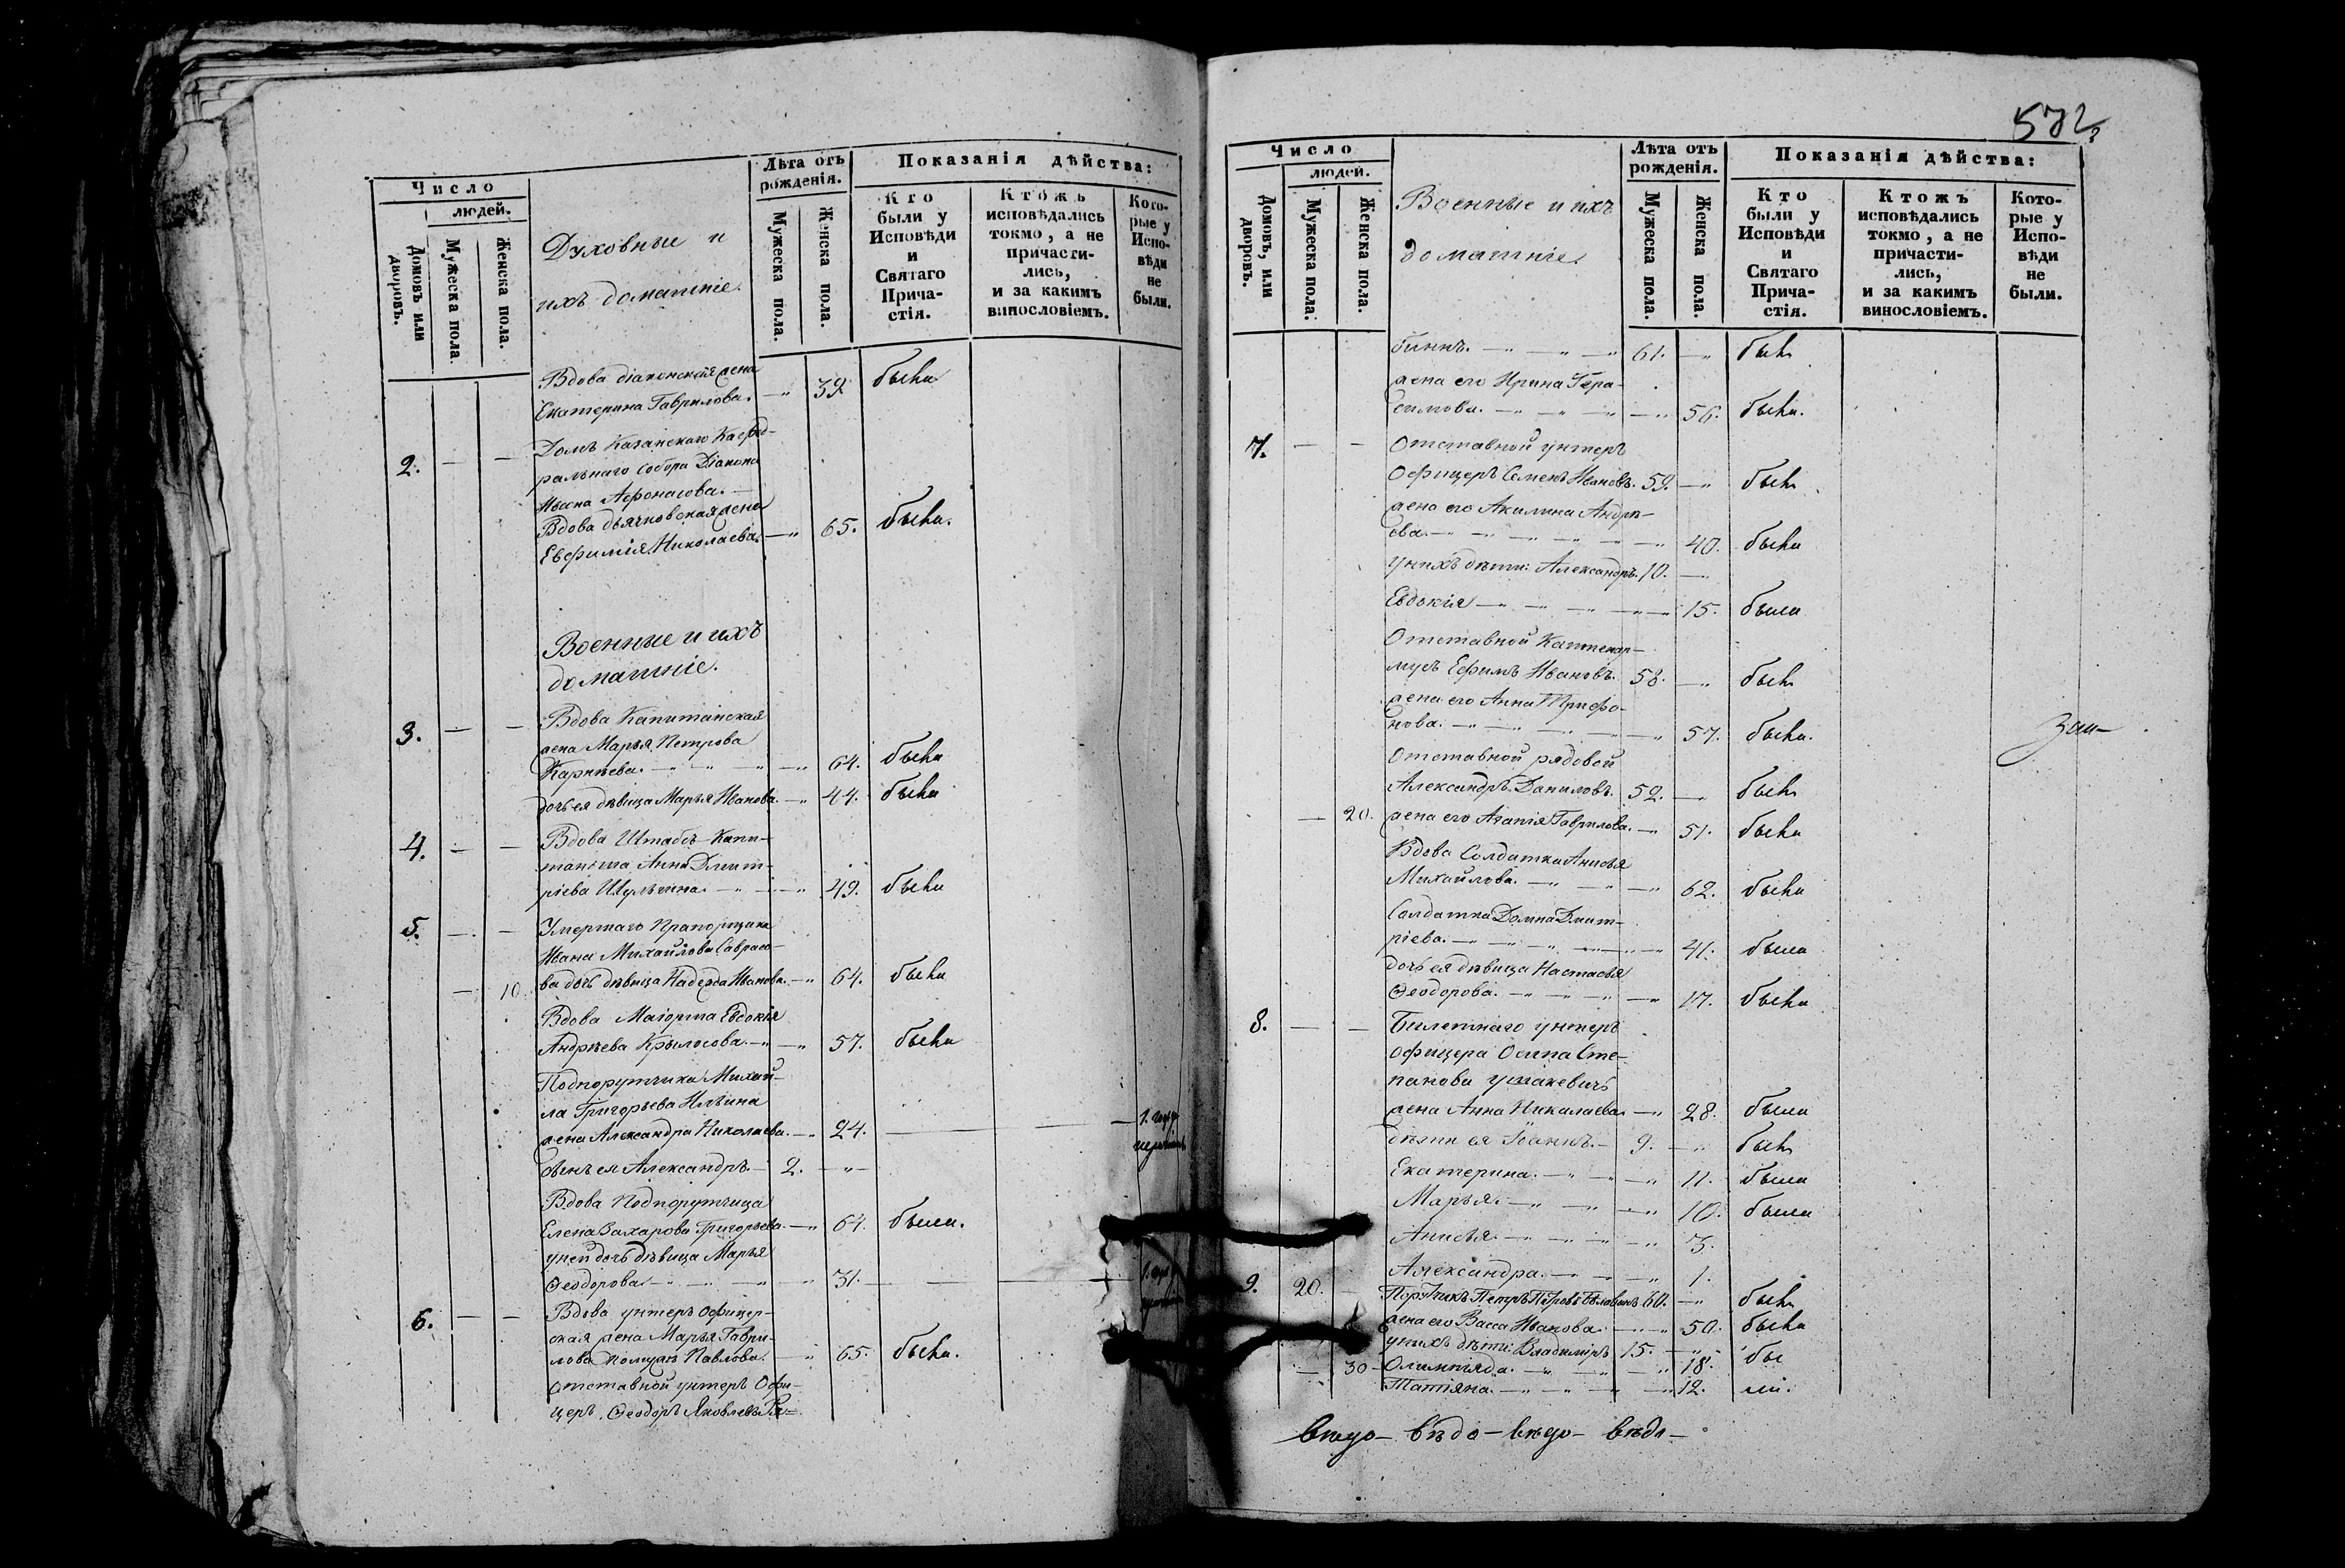 Число
людей.
Домовъ или дворовъ.
Мужеска пола.
Женска пола.
Духовные и
ихъ домашніе.
Лѣта отъ рожденія.
Мужеска пола.
Женска пола.
Показанія дѣйства:
Кто были у Исповѣди и Святаго Прича-стія.
Ктожъ исповѣдались токмо, а не причасти-лись, и за какимъ винословіемъ.
Кото-рые у Испо-вѣди не были.
Вдова діаконская жена
Екатерина Гаврилова. —„ 39. была
2. — — Домъ Казанскаго Кафед-
ральнаго Собора Діакона
Ивана Афонасова. —
Вдова дьячковская жена
Евфимія Николаева. —„ 65. была.
Военные и ихъ
домашніе.
3. — — Вдова Капитанская
жена Марья Петрова
Карнѣева. —„ —„ —„ 64. была
дочь ея дѣвица Марья Иванова. —„ 44. была
4. — — Вдова Штабсъ-Капи-
танша Анна Дмит-
ріева Шульгина. —„ —„ 49. была
5. — — Умершаго Прапорщика
Ивана Михайлова Саврасо-
— 10. ва дочь дѣвица Надежда Иванова. —„ 64. была
Вдова Маіорша Евдокія
Андрѣева Крылосова. —„ —„ 57. была
Подпорутчика Михай-
ла Григорьева Ильина
жена Александра Николаева. —„ 24. — — 1.
сынъ ея Александръ. — 2. —„—
Вдова Подпорутчица
Елена Захарова Григорьева. —„ 64. была.
у ней дочь дѣвица Марья
Θеодорова. —„ —„ —„ 31. — — 1.
6. — — Вдова унтеръ офицер-
ская жена Марья Гаври-
лова Павлова. —„ 65. была.
Отставной унтеръ Офи-
церъ Θеодоръ Яковлевъ
572
Число
людей.
Домовъ, или дворовъ.
Мужеска пола.
Женска пола.
Военные и ихъ
домашніе
Лѣта отъ рожденія.
Мужеска пола.
Женска пола.
Показанія дѣйства:
Кто были у Исповѣди и Святаго Прича-стія.
Ктожъ исповѣдались токмо, а не причасти-лись, и за какимъ винословіемъ.
Кото-рые у Испо-вѣди не были.
бинъ. —„ —„ —„ 61. —„ былъ
жена его Ирина Гера-
симова. —„ —„ —„ —„ 56. была.
7. — — Отставной унтеръ
Офицеръ Семенъ Ивановъ. 59. —„ былъ
жена его Акилина Андрѣ-
ева. —„ —„ —„ —„ —„ 40. была
у нихъ дѣти: Александръ. 10. —„
Евдокія —„ —„ —„ —„ 15. была
Отставной Каптенар-
мусъ Ефимъ Ивановъ. 58. —„ былъ
жена его Анна Трифо-
нова. —„ —„ —„ —„ 57. была.
Зан-
Отставной рядовой
Александръ Даниловъ. 52. —„ былъ
— 20. жена его Агапія Гаврилова. —„ 51. была
Вдова Солдатка Анисья
Михайлова. —„ —„ —„ 62. была
Солдатка Домна Дмит-
ріева. —„ —„ —„ —„ —„ 41. была
дочь ея дѣвица Настасья
Θеодорова. —„ —„ —„ —„ 17. была
8. — — Билетнаго унтеръ
офицера Осипа Сте-
панова
жена Анна Николаева —„ 28. была
дѣти ея Іоаннъ. — 9. —„ былъ
Екатерина. —„ —„ —„ 11. была
Марья. —„ —„ —„ 10. была
Анисья. —„ —„ —„ —„ 3.
Александра. —„ —„ —„ 1.
9. 20. — Порутчикъ Петръ Петровъ 60. —„ былъ
жена его Васса Иванова. —„ 50. была
у нихъ дѣти: Владиміръ 15. —„
— 30 Олимпіада. —„ —„ —„ 18. бы
Татіяна. —„ —„ —„ —„ 12. ли.